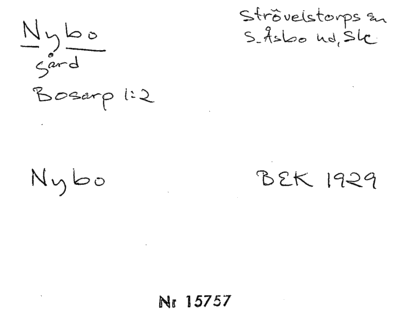 Nybo
gård
Bosarp 1:2
Strövelstorps sn
S. Åsbo hd, Sk
Nybo
BEK 1929
Nr 15757